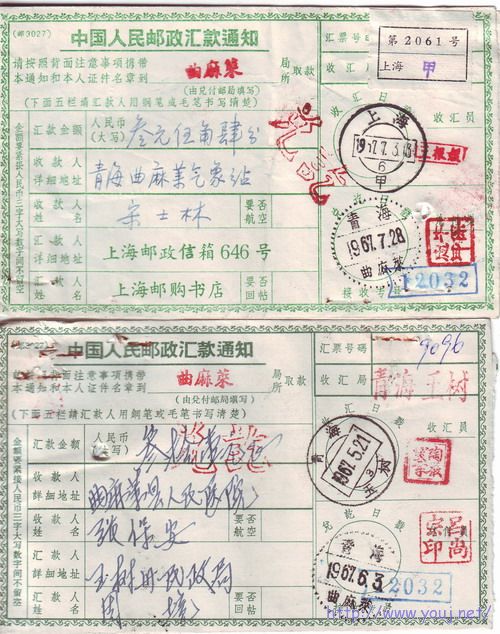 (邮3027)
中国人民邮政汇款通知
汇票号码
第2061号
上海 甲
请按照背面注意事项携带
本通知和本人证件名章到
曲麻莱
局所取款
(由兑付邮局填写)
(下面五栏请汇款人用钢笔或毛笔书写清楚)
收汇日戳
收汇员
上海
1967.7.3
6
甲
汇款金额
人民币(大写)
叁元伍角肆分
收款人
详细地址
青海曲麻莱气象站
收款人
姓名
宗士林
要否航空
汇款人
详细地址
上海邮政信箱646号
汇款人
姓名
上海邮购书店
要否回帖
金额要紧接人民币三字大写数字间不留空
兑讫日戳
青海
1967.7.28
曲麻莱
接收号码
12032
(邮3027)
中国人民邮政汇款通知
汇票号码
9096
背面注意事项携带
本通知和本人证件名章到
曲麻莱
局所取款
(由兑付邮局填写)
收汇局
青海玉树
(下面五栏请汇款人用钢笔或毛笔书写清楚)
收汇日戳
收汇员
青海
1967.5.21
3
玉树
汇款金额
人民币(大写)
收款人
详细地址
曲麻莱县人民医院
收款人
姓名
张保安
要否航空
汇款人
详细地址
玉树州民政局
汇款人
姓名
周
要否回帖
金额要紧接人民币三字大写数字间不留空
兑讫日戳
青海
1967.6.3
曲麻莱
2032
http://www.youj.net